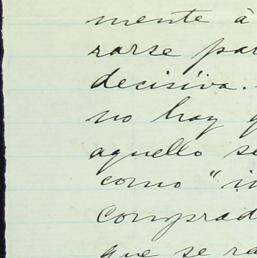 mente à
rarse par
decisiva.
no hay q
aquello se
como "in
comprad
que se ra